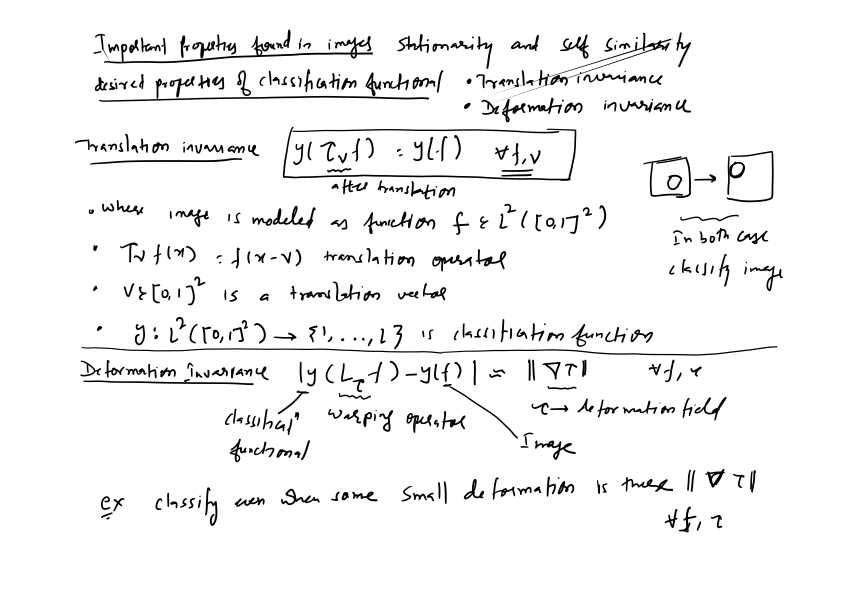 Important properties found in images stationarity and self similarity
desired properties of classification functional • Translation invariance
• Deformation invariance
Translation invariance y(τᵥf) = y(f) ∀f,v
after translation
• where image is modeled as function f ε L²([0,1]²)
• Tᵥ f(x) = f(x-v) translation operator
• V ε [0,1]² is a translation vector
• y: L²([0,1]²) → {1,...,L} is classification function
In both case
classify image
Deformation Invariance |y(L_τ f) - y(f)| ≈ ||∇τ|| ∀f,τ
classificatⁿ
functional
warping operator
τ → deformation field
Image
ex classify even when some small deformation is there ||∇τ||
∀f,τ